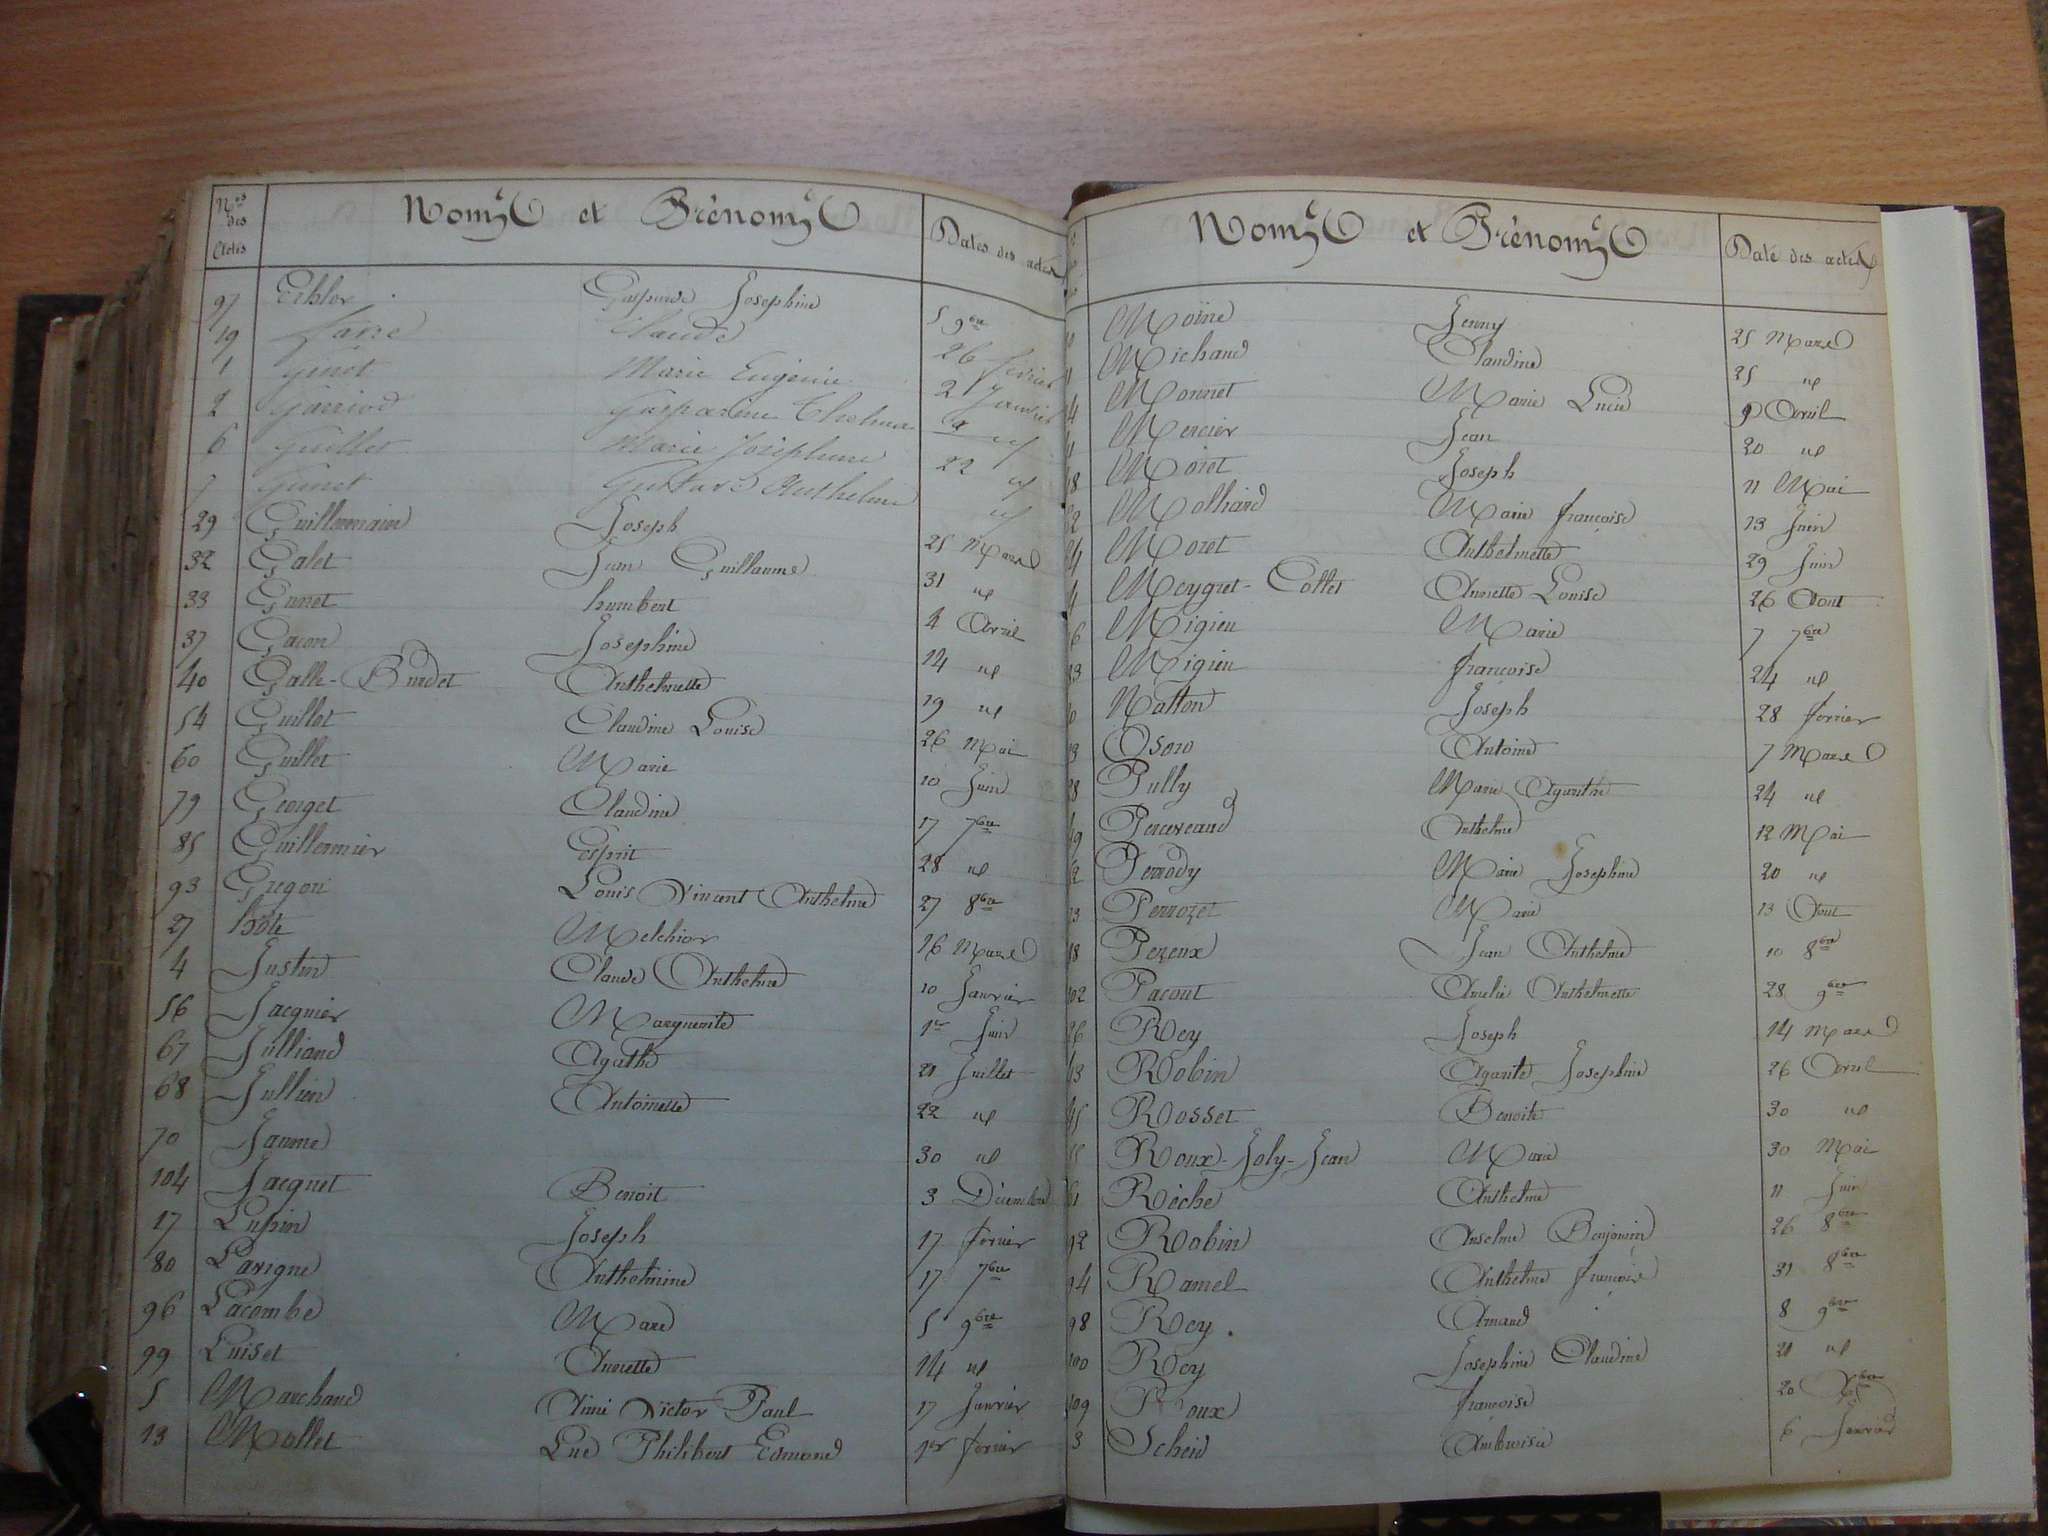 Nos des Actes Noms et Prénoms Dates des actes
97 Gasparde Josephine 5 9bre
19 Favre Claude 26 fevrier
1 Genet Marie Eugenie 2 Janvier
2 Garriod Gasparine
6 Guillet Marie Joséphine 22 id
Gustave Anthelme id
29 Guillermain Joseph 25 Mars
32 Galet Jean Guillaume 31 id
33 Gunet humbert 4 Avril
37 Gacon Josephine 14 id
40 Galle-Burdet Anthelmette 19 id
54 Guillot Claudine Louise 26 Mai
60 Guillet Marie 10 Juin
79 Georget Claudine 17 7bre
85 Guillermier Esprit 28 id
93 Gregori Louis Vincent Anthelme 27 8bre
27 hôte Melchior 16 Mars
4 Justin Claude Anthelme 10 Janvier
56 Jacquier Marguerite 1er Juin
67 Julliand Agathe 21 Juillet
68 Jullien Antoinette 22 id
70 Jaume 30 id
104 Jacquet Benoit 3 Décembre
17 Lupin Joseph 17 fevrier
80 Lavigne Anthelmine 17 7bre
96 Lacombe Marc 5 9bre
99 Luiset Annette 14 id
5 Marchand Aimé Victor Paul 17 Janvier
13 Mollet Luc Philibert Edmond 1er fevrier
Noms et Prénoms Date des actes
Moine Jenny 25 Mars
Michaud Claudine 25 id
Monnet Marie Lucie 9 Avril
Mercier Jean 20 id
Moret Joseph 11 Mai
Molliard Marie françoise 13 Juin
Moret Anthelmette 29 Juin
Meygret-Collet Annette Louise 26 Aout
Migieu Marie 7 7bre
Migieu françoise 24 id
Natton Joseph 28 fevrier
Antoine 7 Mars
Pully Marie Agarithe 24 id
Perceveaud Anthelme 12 Mai
Perrody Marie Josephine 20 id
Perrozet Marie 13 Aout
Pezeux Jean Anthelme 10 8bre
102 Pacout Amelie Anthelmette 28 9bre
26 Rey Joseph 14 Mars
Robin Agarite Josephine 26 Avril
45 Rosset Benoite 30 id
Roux-Joly-Jean Marie 30 Mai
61 Rêche Anthelme 11 Juin
92 Robin Anselme Benjamin 26 8bre
94 Ramel Anthelme françois 31 8bre
98 Rey Armand 8 9bre
100 Rey Josephine Claudine 21 id
109 Roux françoise 20 Xbre
3 Scheid Ambroise 6 Janvier